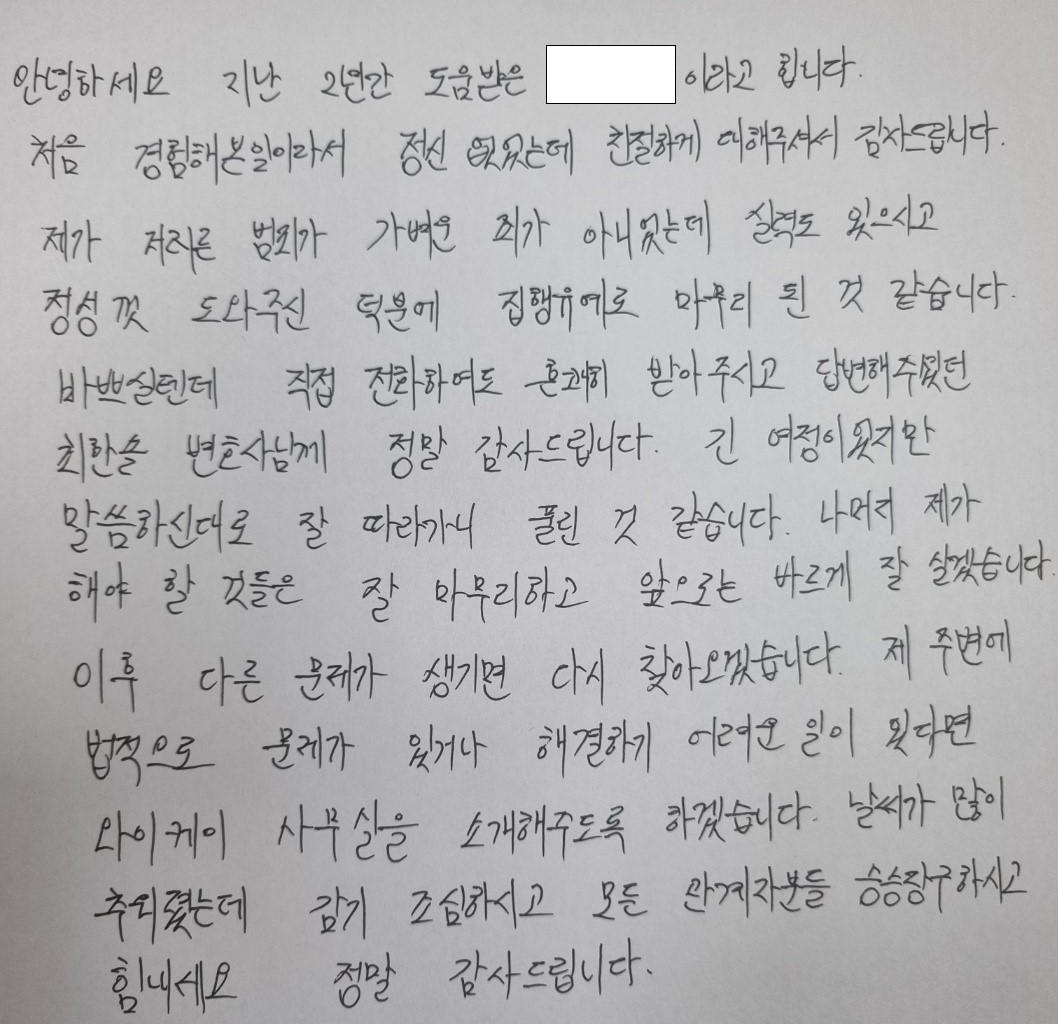 안녕하세요 지난 2년간 도움받은 이라고 합니다.
처음 경험해본일이라서 정신 없었는데 친절하게 대해주셔서 감사드립니다.
제가 저지른 범죄가 가벼운 죄가 아니었는데 실력도 있으시고
정성껏 도와주신 덕분에 집행유예로 마무리 된 것 같습니다.
바쁘실텐데 직접 전화하여도 흔쾌히 받아주시고 답변해주셨던
최한솔 변호사님께 정말 감사드립니다. 긴 여정이었지만
말씀하신대로 잘 따라가니 풀린 것 같습니다. 나머지 제가
해야 할 것들은 잘 마무리하고 앞으로는 바르게 잘 살겠습니다.
이후 다른 문제가 생기면 다시 찾아오겠습니다. 제 주변에
법적으로 문제가 있거나 해결하기 어려운 일이 있다면
와이케이 사무실을 소개해주도록 하겠습니다. 날씨가 많이
추워졌는데 감기 조심하시고 모든 관계자분들 승승장구하시고
힘내세요 정말 감사드립니다.